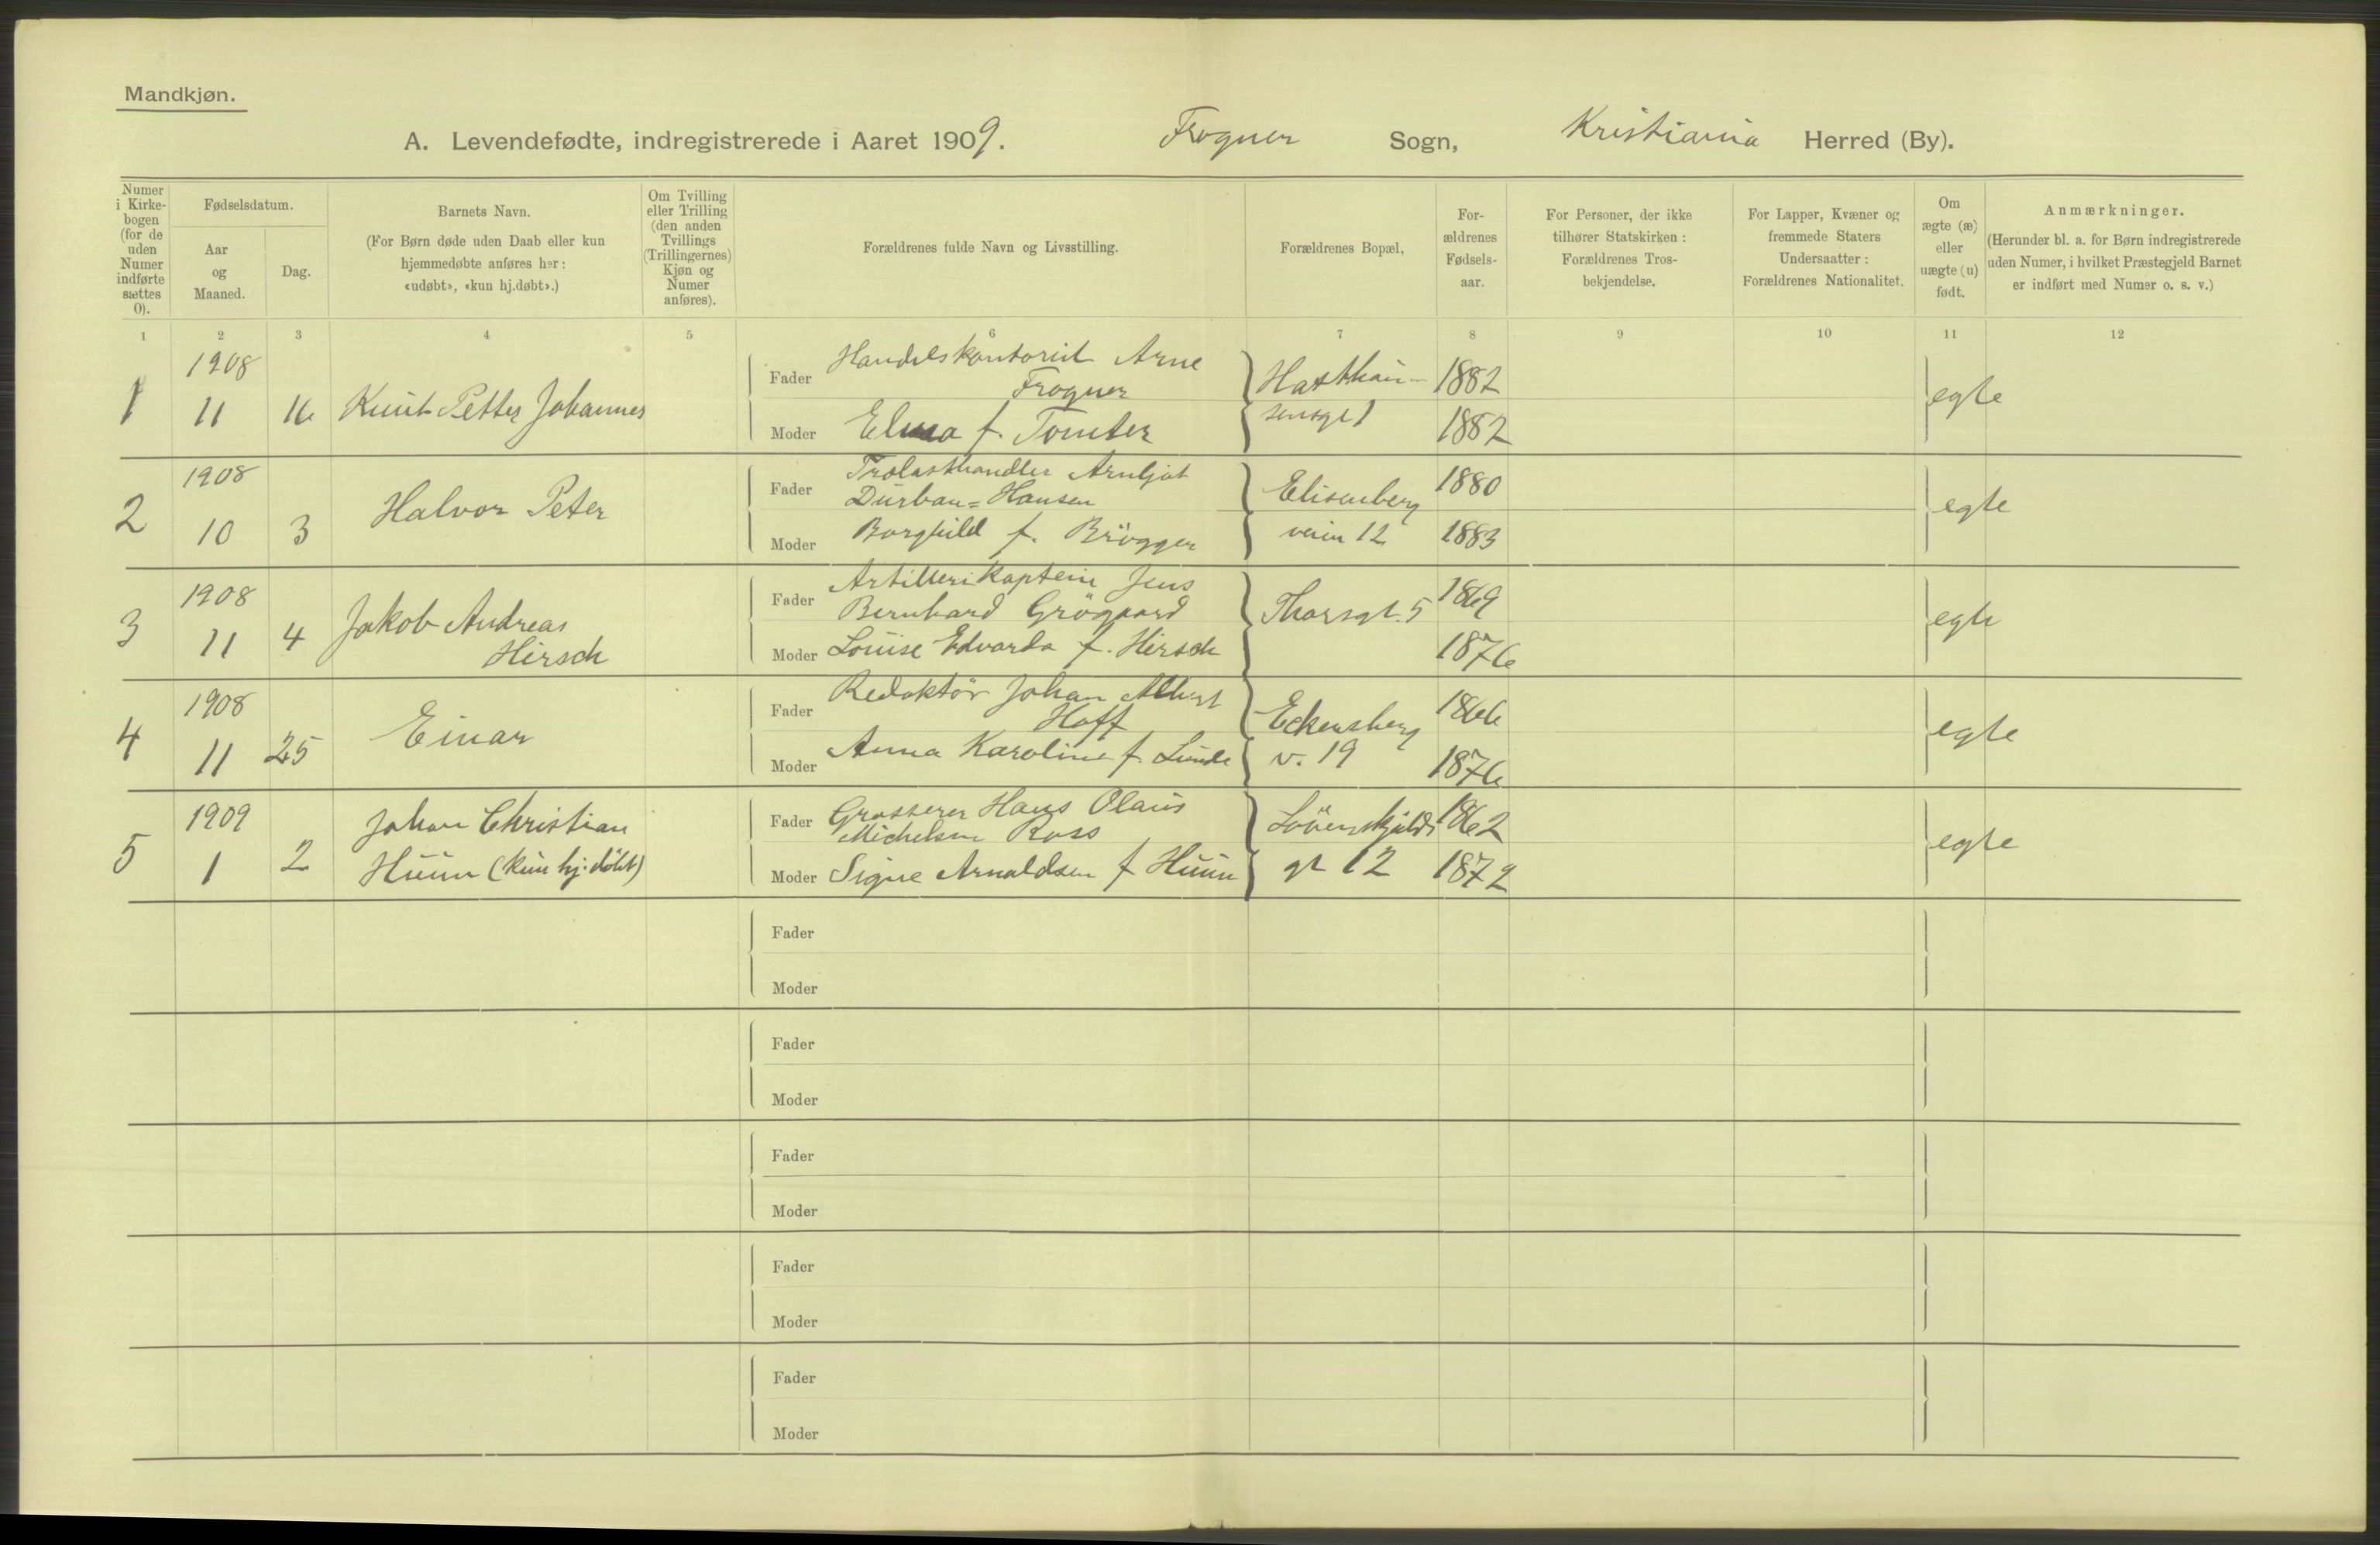 Mandkjøn.
A. Levendefødte, indregistrerede i Aaret 1909. Frogner Sogn, Kristiania Herred (By).
Numer i Kirkebogen (for de uden Numer indførte sættes 0).
Fødselsdatum.
Aar og Maaned.
Dag.
Barnets Navn.
(For Børn døde uden Daab eller kun hjemmedøbte anføres her: «udøbt», «kun hj.døbt».)
Om Tvilling eller Trilling (den anden Tvillings (Trillingernes) Kjøn og Numer anføres).
Forældrenes fulde Navn og Livsstilling.
Forældrenes Bopæl.
Forældrenes Fødselsaar.
For Personer, der ikke tilhører Statskirken: Forældrenes Trosbekjendelse.
For Lapper, Kvæner og fremmede Staters Undersaatter: Forældrenes Nationalitet.
Om ægte (æ) eller uægte (u) født.
Anmærkninger.
(Herunder bl. a. for Børn indregistrerede uden Numer, i hvilket Præstegjeld Barnet er indført med Numer o. s. v.)
1 2 3 4 5 6 7 8 9 10 11 12
1 1908 11 16 Knut Petter Johannes
Fader Handelskontorist Arne Frogner
Moder Elna f. Tomter
1882
1882
egte
2 1908 10 3 Halvor Peter
Fader Trælasthandler Arnljot Durban=Hansen
Moder Borghild f. Brögger
Elisenberg veien 12
1880
1883
egte
3 1908 11 4 Jakob Andreas Hirsch
Fader Artillerikaptein Jens Bernhard Grögaard
Moder Louise Edvarda f. Hirsch
Thorsgt. 5
1869
1876
egte
4 1908 11 25 Einar
Fader Redaktör Johan Albert Hoff
Moder Anna Karoline f. Lunde
Eckersberg v. 19
1866
1876
egte
5 1909 1 2 Johan Christian Huun (kun hj. döbt)
Fader Grosserer Hans Olaus Michelsen Ross
Moder Signe Arnaldsen f Huun
Lövenskjolds gt 12
1862
1872
egte
Fader
Moder
Fader
Moder
Fader
Moder
Fader
Moder
Fader
Moder